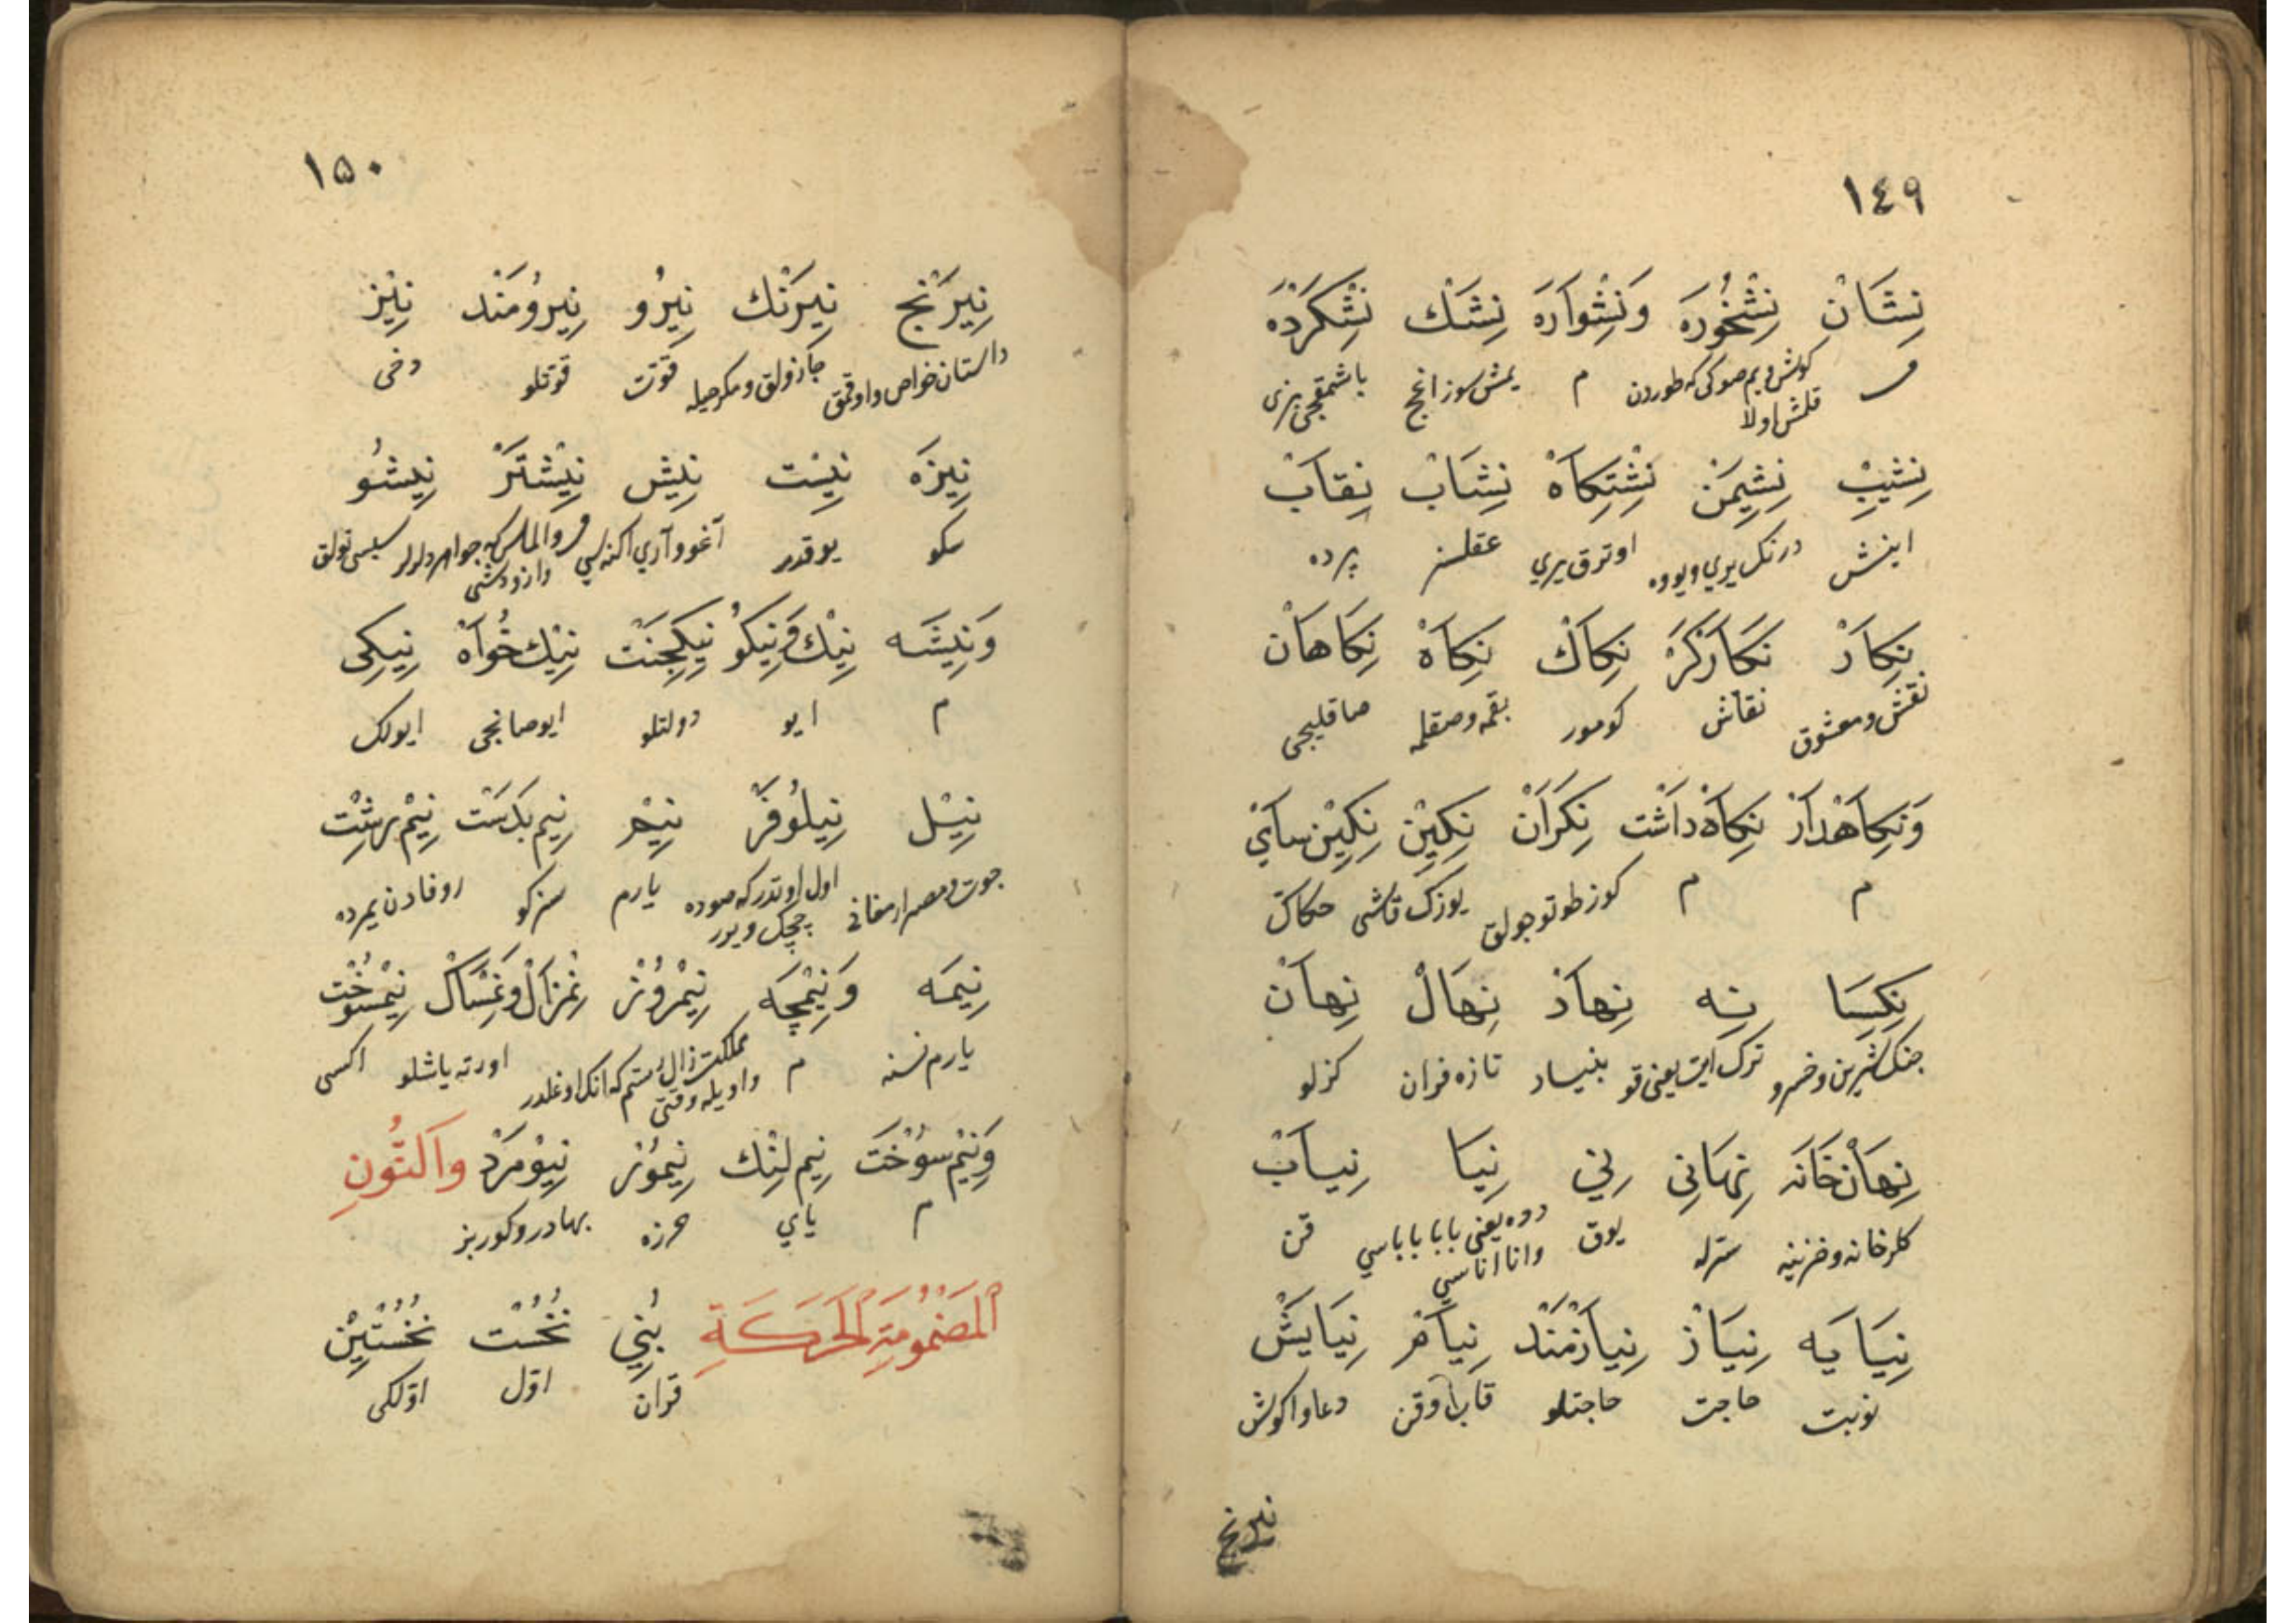 ١٤٩
نِشَانْ نِشْخُورَه وَنِشْوَارَه نِشَكْ نِشْكَرْدَه
م كوش ديم صوكى كه طوردن م يمش سوزانج باشمقجى بزى
قلمش اولا
نِشِيبْ نِشِيمَنْ نِشْتِكَاهْ نِشَابْ نِقَابْ
اينش درنك يري ويووه اوترق يري عقلسز پرده
نِكَارْ نَكَارْكَرْ نِكَاكْ نِكَاهْ نِكَاهَانْ
نقش ومعشوق نقاش كومور بقمه وصقلمه صاقليجى
وَنِكَاهْدَارْ نِكَاهْ دَاشْت نِكَرَانْ نِكِينْ نِكِينْ سَايْ
م م كوز طوتوجولق يوزك قاشى حكاك
نِكِيسَا نِه نِهَادْ نِهَالْ نِهَانْ
جنك شيرين وخسرو ترك ايت يعنى قو بنياد تازه فدان كزلو
نِهَانْ خَانَه نِهَانِي نِي نِيَا نِيَابْ
كلرخانه وخزينه سترله يوق دده يعنى بابا باباسي قن
وانا اناسي
نِيَايَه نِيَازْ نِيَازْمَنْد نِيَامْ نِيَايَشْ
نوبت حاجت حاجتلو قاب اوقن دعا والكوش
نيرنج
١٥٠
نِيرَنْج نِيرَنْك نِيرُو نِيرُومَنْد نِيْز
داستان خواص واوقمق جازولق ومكر حيله قوّت قوّتلو دخى
نِيزَه نِيْسْت نِيْش نِيْشْتَرْ نِيشُو
سكو يوقدر آغو وآري اكنه سي م والماس كه جواهر دلرلر سبسى تولق
وَنِيشَه نِيْك وَنِيكُو نِيكَجَنْت نِيْك خُوَاهْ نِيكِى
م ايو دولتلو ايو صانجى ايولك
نِيْل نِيلُوفَرْ نِيْم نِيم بَدَسْت نِيْم بِرِشْت
جوت ومصر ارمغانى اول اوتدر كه صوده يارم سزكو روفادن يمرده
چچك ويرر
نِيمَه وَنِيْمْچَه نِيْمْرُوزْ نِمْزَالْ وَنِمْسَالْ نِيْمْسُوخْت
يارم نسنه م مملكت زال رستم كه انك اوغلدر اورته ياشلو اكسى
واويله وقتى
وَنِيْم سُوخْتَ نِيم لِنْك نِيمُوزْ نِيْو مَرْد وَالنُّونِ
م ياي هرزه بهادر وكوربز
الْمَضْمُومَةِ الْحَرَكَةِ نُبِي نُخُسْت نُخُسْتِيْن
قران اوّل اوّلكى